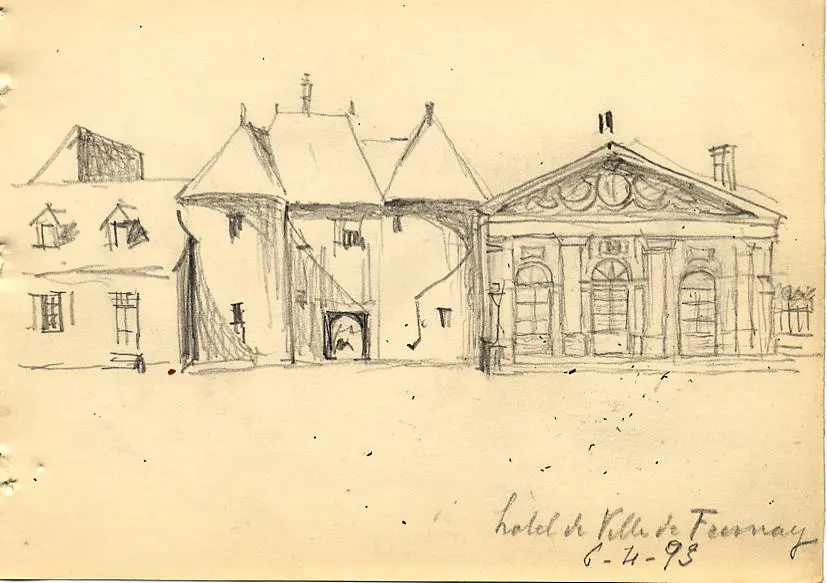 hôtel de Ville de Fresnay
6-4-93